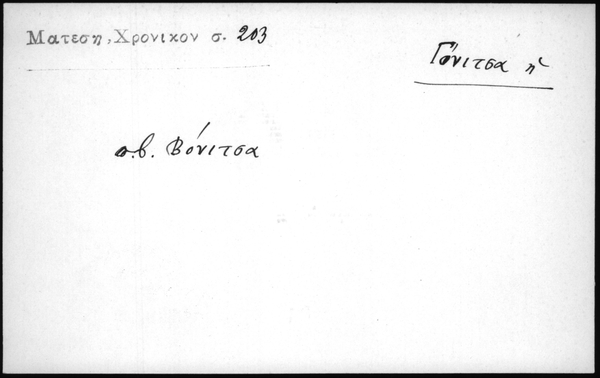 Ματεση, Χρονικον σ. 203
Γόνιτσα ἡ
σ.β. Βόνιτσα